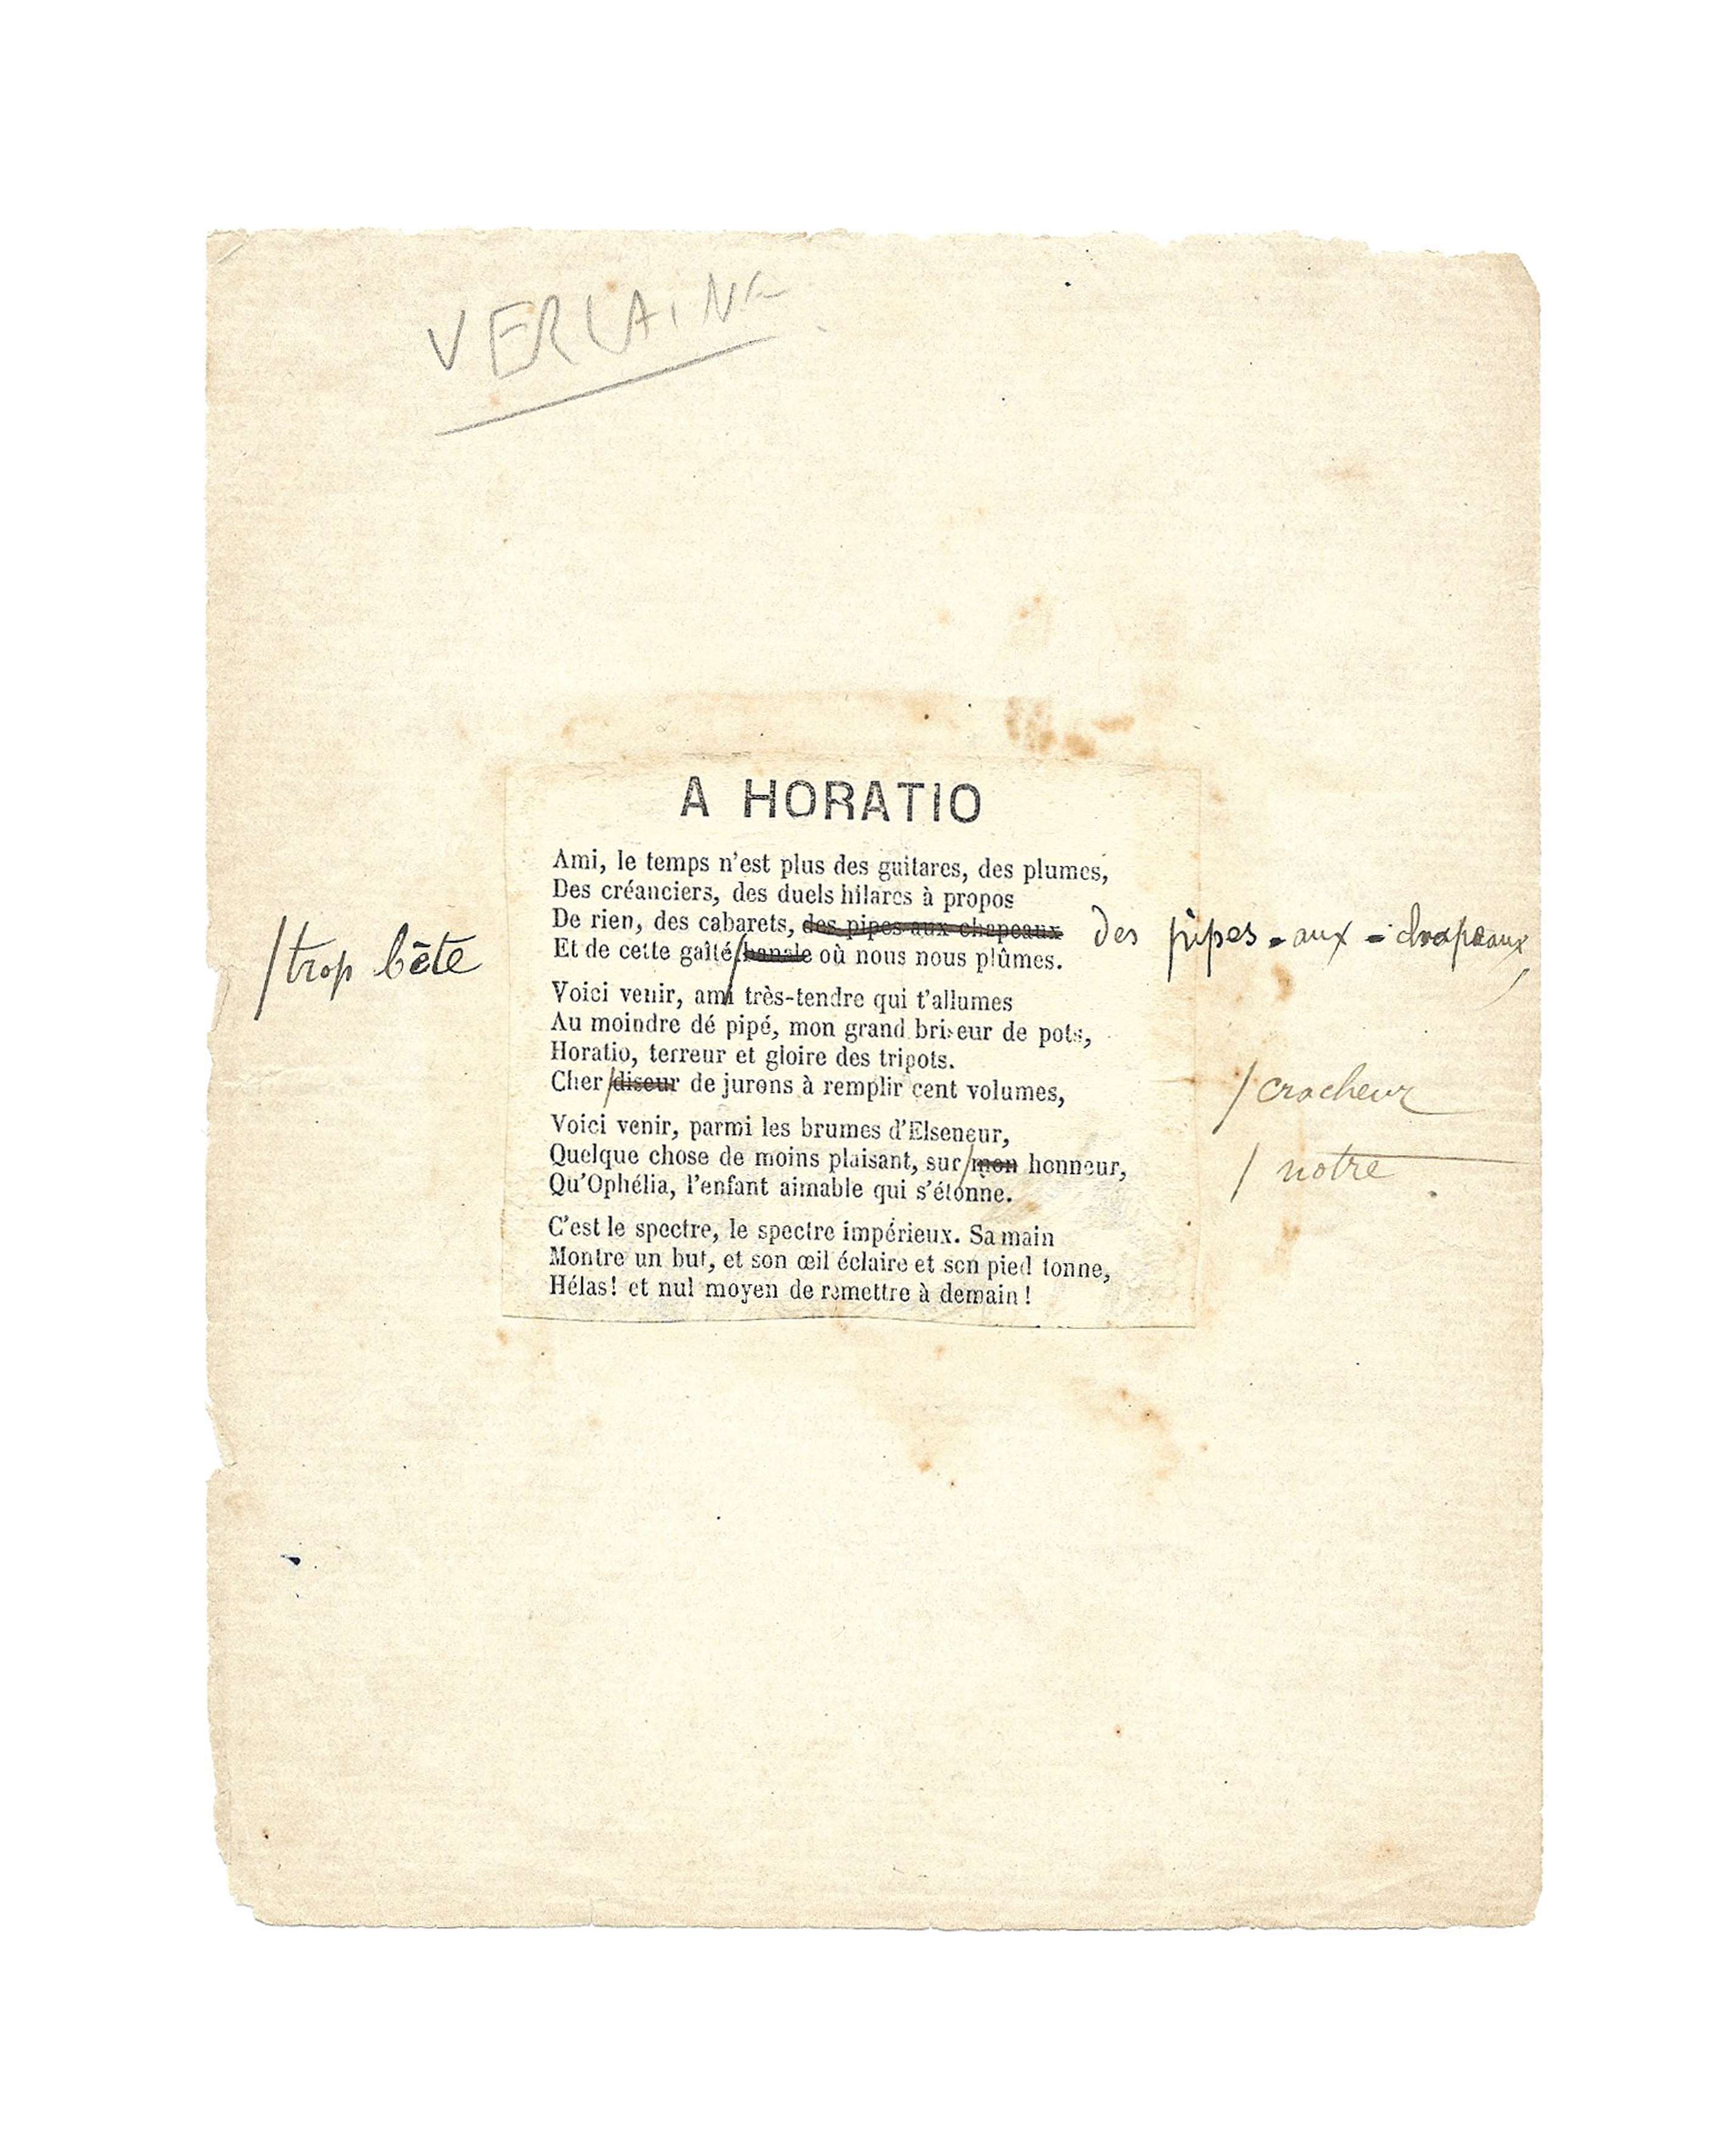 VERLAINE
A HORATIO
Ami, le temps n'est plus des guitares, des plumes,
Des créanciers, des duels hilares à propos
De rien, des cabarets, des pipes aux chapeaux des pipes-aux-chapeaux
/trop bête
Et de cette gaîté banale où nous nous plûmes.
Voici venir, ami très-tendre qui t'allumes
Au moindre dé pipé, mon grand briseur de pots,
Horatio, terreur et gloire des tripots.
Cher/diseur de jurons à remplir cent volumes, /cracheur
Voici venir, parmi les brumes d'Elseneur,
Quelque chose de moins plaisant, sur/mon honneur, / notre
Qu'Ophélia, l'enfant aimable qui s'étonne.
C'est le spectre, le spectre impérieux. Sa main
Montre un but, et son œil éclaire et son pied tonne,
Hélas! et nul moyen de remettre à demain!